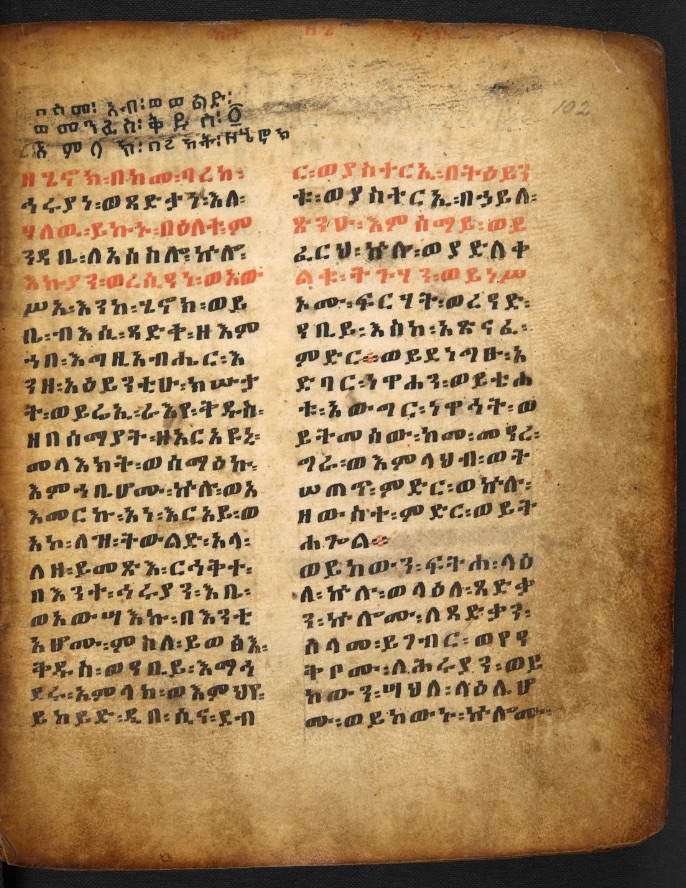 በስመ፡ አብ፡ወወልድ፡
ወመንፈስ፡ቅዱስ፡፩
አምላክ፡በረከት፡ዘሄኖክ
ዘሄኖክ፡በከመ፡ባረከ፡
ኅሩያነ፡ወጻድቃን፡እለ፡
ሃለዉ፡ይኩኑ፡በዕለተ፡ም
ንዳቤ፡ለአሰስሎ፡ኵሎ፡
እኩያን፡ወረሲዓነ፡ወአው
ሥአ፡እንከ፡ሄኖክ፡ወይ
ቤ፡ብእሲ፡ጻድቅ፡ዘእም
ኀበ፡እግዚአብሔር፡እ
ንዘ፡አዕይንቲሁ፡ክሡታ
ት፡ወይሬኢ፡ራእየ፡ቅዱስ፡
ዘበሰማያት፡ዘአርአዩኒ፡
መላእክት፡ወሰማዕኩ፡
እምኀቤሆሙ፡ኵሎ፡ወአ
እመርኩ፡አነ፡እርአይ፡ወ
አኮ፡ለዝ፡ትውልድ፡አላ፡
ለዘ፡ይመጽእ፡ርኅቅተ፡
በእንተ፡ኅሩያን፡እቤ፡
ወአውሣእኩ፡በእንቲ
አሆሙ፡ምስለ፡ይወፅእ፡
ቅዱስ፡ወዓቢይ፡እማኅ
ደሩ፡አምላከ፡ወእምህየ፡
ይከይድ፡ዲበ፡ሲና፡ደብ
ር፡ወያስተርኢ፡በትዕይን
ቱ፡ወያስተርኢ፡በኃይለ፡
ጽንዑ፡እምሰማይ፡ወይ
ፈርህ፡ኵሉ፡ወያድለቀ
ልቁ፡ትጉሃን፡ወይነሥ
ኦሙ፡ፍርሃት፡ወረዓድ፡
ዓቢይ፡እስከ፡አጽናፈ፡
ምድር፡ወይደነግፁ፡አ
ድባር፡ነዋሐን፡ወይቴሐ
ቱ፡አውግር፡ነዋኅት፡ወ
ይትመሰው፡ከመ፡መዓረ፡
ግራ፡ወእምላህብ፡ወት
ሠጠም፡ምድር፡ወኵሉ፡
ዘውስተ፡ምድር፡ወይት
ሐጐል።
ወይከውን፡ፍትሐ፡ላዕ
ለ፡ኵሉ፡ወላዕለ፡ጻድቃ
ን፡ኵሎሙ፡ለጻድቃን፡
ሰላመ፡ይገብር፡ወየዓ
ቅቦሙ፡ለኅሩያን፡ወይ
ከውን፡ሣህለ፡ላዕሌሆ
ሙ፡ወይከውኑ፡ኵሎሙ፡
102